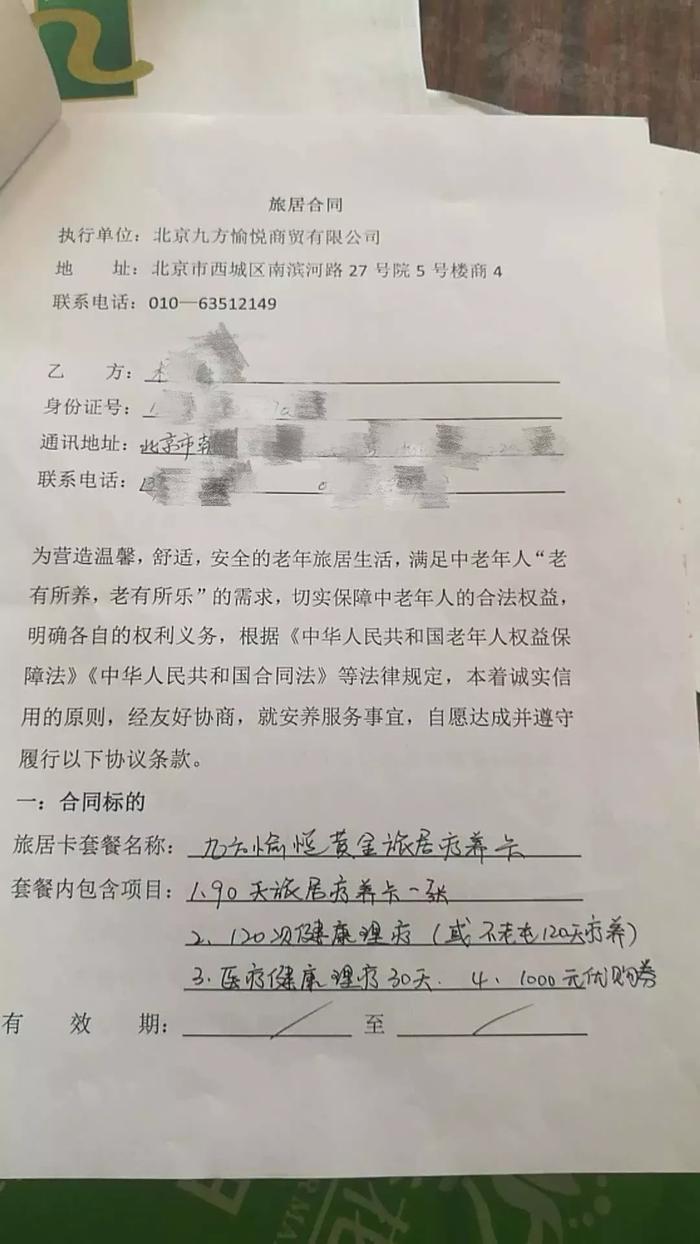 旅居合同
执行单位：北京九方愉悦商贸有限公司
地 址：北京市西城区南滨河路 27 号院 5 号楼商 4
联系电话：010—63512149
乙 方：
身份证号：
通讯地址：北京市朝
联系电话：
为营造温馨，舒适，安全的老年旅居生活，满足中老年人“老
有所养，老有所乐”的需求，切实保障中老年人的合法权益，
明确各自的权利义务，根据《中华人民共和国老年人权益保
障法》《中华人民共和国合同法》等法律规定，本着诚实信
用的原则，经友好协商，就安养服务事宜，自愿达成并遵守
履行以下协议条款。
一：合同标的
旅居卡套餐名称：九方愉悦黄金旅居疗养卡
套餐内包含项目：1、90 天旅居疗养卡一张
2、120次健康理疗（或不老屯120天疗养）
3、医疗健康理疗30天. 4、1000元优购券
有 效 期： / 至 /